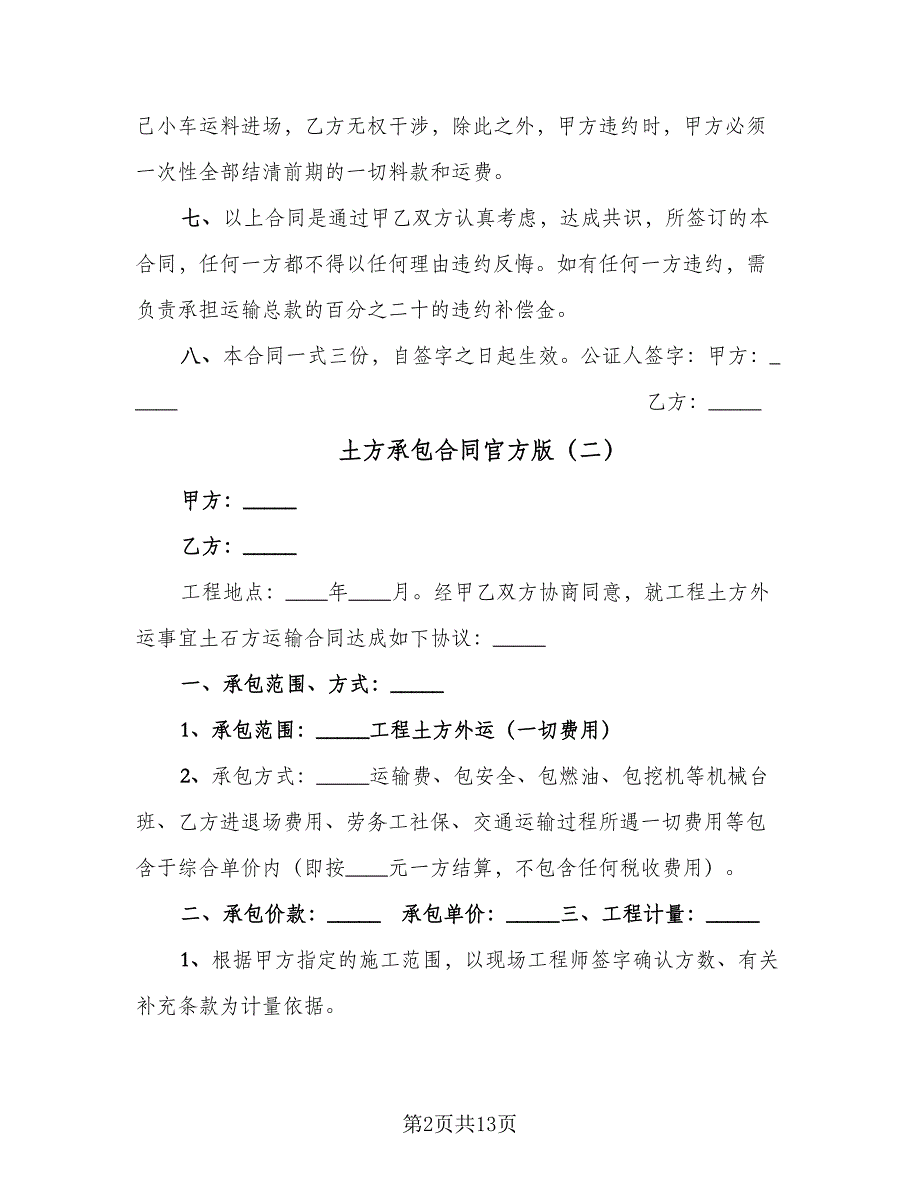 己小车运料进场，乙方无权干涉，除此之外，甲方违约时，甲方必须
一次性全部结清前期的一切料款和运费。
七、以上合同是通过甲乙双方认真考虑，达成共识，所签订的本
合同，任何一方都不得以任何理由违约反悔。如有任何一方违约，需
负责承担运输总款的百分之二十的违约补偿金。
八、本合同一式三份，自签字之日起生效。公证人签字：甲方：_
____ 乙方：_____
土方承包合同官方版（二）
甲方：_____
乙方：_____
工程地点：____年____月。经甲乙双方协商同意，就工程土方外
运事宜土石方运输合同达成如下协议：_____
一、承包范围、方式：_____
1、承包范围：_____工程土方外运（一切费用）
2、承包方式：_____运输费、包安全、包燃油、包挖机等机械台
班、乙方进退场费用、劳务工社保、交通运输过程所遇一切费用等包
含于综合单价内（即按____元一方结算，不包含任何税收费用）。
二、承包价款：_____ 承包单价：_____三、工程计量：_____
1、根据甲方指定的施工范围，以现场工程师签字确认方数、有关
补充条款为计量依据。
第2页共13页